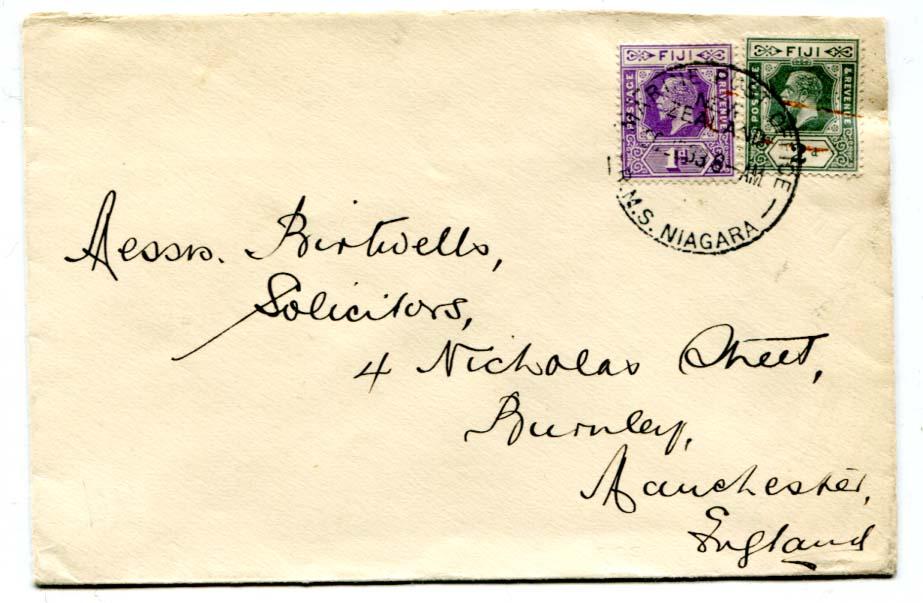 FIJI
POSTAGE & REVENUE
1D
FIJI
POSTAGE & REVENUE
MARINE POST OFFICE
N.Z.
ZEALAND
8-AM
R.M.S. NIAGARA
Messrs. Birtwells,
Solicitors,
4 Nicholas Street,
Burnley,
Manchester,
England